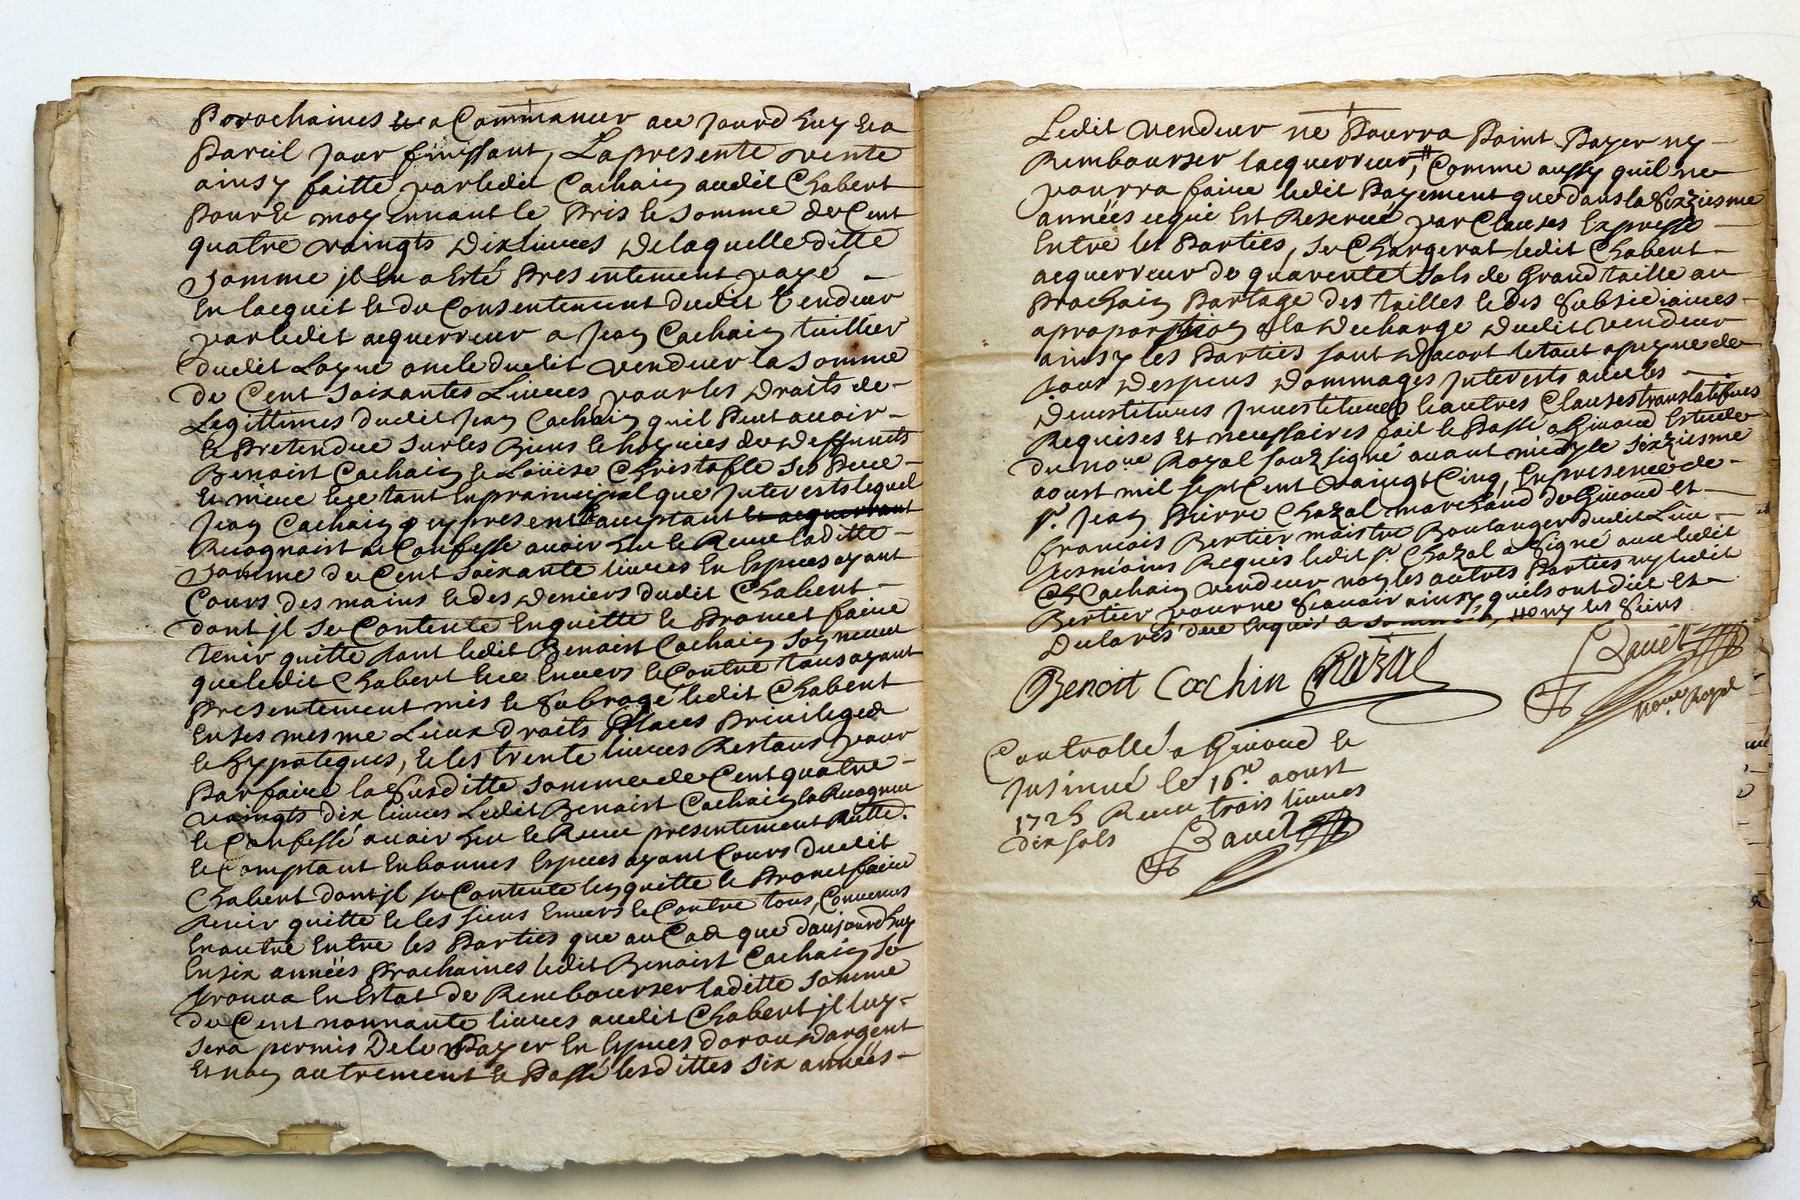 Prochaines a Commancer ace Jourd huy et a
Pareil Jour finissant, La presente vente
ainsy faitte par ledit Cachain audit Chabert
Pour et moyennant le Pris et somme de Cent
quatre vaingts Dix livres De laquelle ditte
Somme jl En a Esté Presentement payé
En lacquit et du Consentement dudit Vendeur
par ledit acquerreur a Jean Cachain tuillier
dudit oncle dudit vendeur la somme
de Cent soixantes Livres pour les Droits de
Legittimes dudit Jean Cachain quil Peut avoir
et Pretendre sur les Biens et hoyries des Deffunts
Benoist Cachain et Loüise Christofle ses Pere
Et mere Et ce tant En prainsipal que Interests lequel
Jean Cachain cy present acceptant et acquerrant
Recognoist et Confesse avoir heu et Receu laditte
Somme de Cent soixante livres En Especes ayant
Cours des mains et des Deniers dudit Chabert
dont jl se Contente En quitte et Promet faire
tenir quitte tant ledit Benoist Cachain son neveu
que ledit Chabert et ce Envers et Contre tous ayant
Presentement mis et Subrogé ledit Chabert
En ses mesme Lieux droits Places Privileges
et hypoteques, et les trente livres Restans pour
Parfaire la Susditte somme de Cent quatre
vaingts dix livres Ledit Benoist Cachain la Recogneu
et Confessé avoir heu et Receu presentement
et Comptant En bonnes Especes ayant Cours dudit
Chabert dont jl se Contente len quitte et Promet faire
tenir quitte et les siens Envers et Contre tous, Convenus
En outre Entre les Parties que au Cas que daujourdhuy
En six années Prochaines ledit Benoist Cachain se
trouva En Estat de Rembourser laditte somme
de Cent nonnante livres audit Chabert jl luy
sera permis De le Payer En Especes dor ou Dargent
Et non autrement et Passé lesdittes six années
Ledit vendeur ne Pourra Point Payer ny
Rembourser lacquerreur, Comme aussy quil ne
pourra faire ledit Payement que dans la Sixziesme
années ce qui Est Reservé par Clauses Expresse
Entre les Parties, se Chargerat ledit Chabert
acquerreur de quarente Sols de Grand taille au
Prochain Partage des tailles et des Subsidiaires
a proportion a la Decharge dudit vendeur
ainsy les Parties sont Dacort le tout a peyne de
tous Despens Dommages Interests avec les
Devestitures Investitures et autres Clauses translatifves
Requises Et necessaires fait et Passé a Givord Estude
du no.re Royal souzsigné avant midy le sixziesme
aoust mil sept Cent vaingt Cing, En presence de
s.r Jean Pierre Chazal marchand de Givord et
francois Bertier maistre Boulanger dudit Lieu
tesmoins Requis ledit s.r Chazal a signé avec ledit
Cachain vendeur non les autres Parties ny ledit
Bertier pour ne Scavoir ainsy quils ont dit et
Declarés de ce Enquis les Siens
Benoit Cachin Chazal
Bauet
no.re Royal
Controllé a Givord et
Insinué le 16.e aoust
1725 Receu trois livres
dix sols Bauet